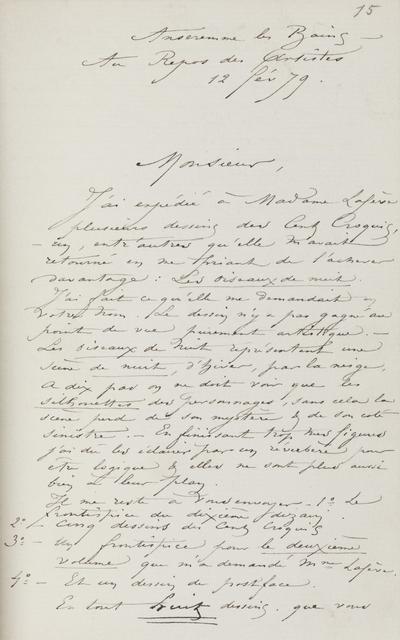 15
Anseremme les Bains —
Au Repos des Artistes
12 fév 79.
Monsieur,
J'ai expédié à Madame Lefèvre
plusieurs dessins des Cent Croquis,
— un, entr'autres qu'elle m'avait
retourné en me priant de l'achever
davantage : Les Oiseaux de nuit.
J'ai fait ce qu'elle me demandait en
votre nom. Le dessin n'y a pas gagné au
point de vue purement artistique. —
Les Oiseaux de Nuit représentent une
scène de nuit, d'hiver, par la neige,
à dix pas on ne doit voir que les
silhouettes des personnages, sans cela la
scène perd de son mystère & de son côté
sinistre. — En finissant trop mes figures
j'ai dû les éclairer par un réverbère pour
être logique & elles ne sont plus aussi
bien à leur plan.
Il me reste à vous envoyer — 1º Le
frontispice du deuxième dizain.
2º — Cinq dessins des Cent Croquis
3º — Un frontispice pour le deuxième
volume que m'a demandé Mme Lefèvre.
4º — Et un dessin de postface.
En tout huit dessins que vous